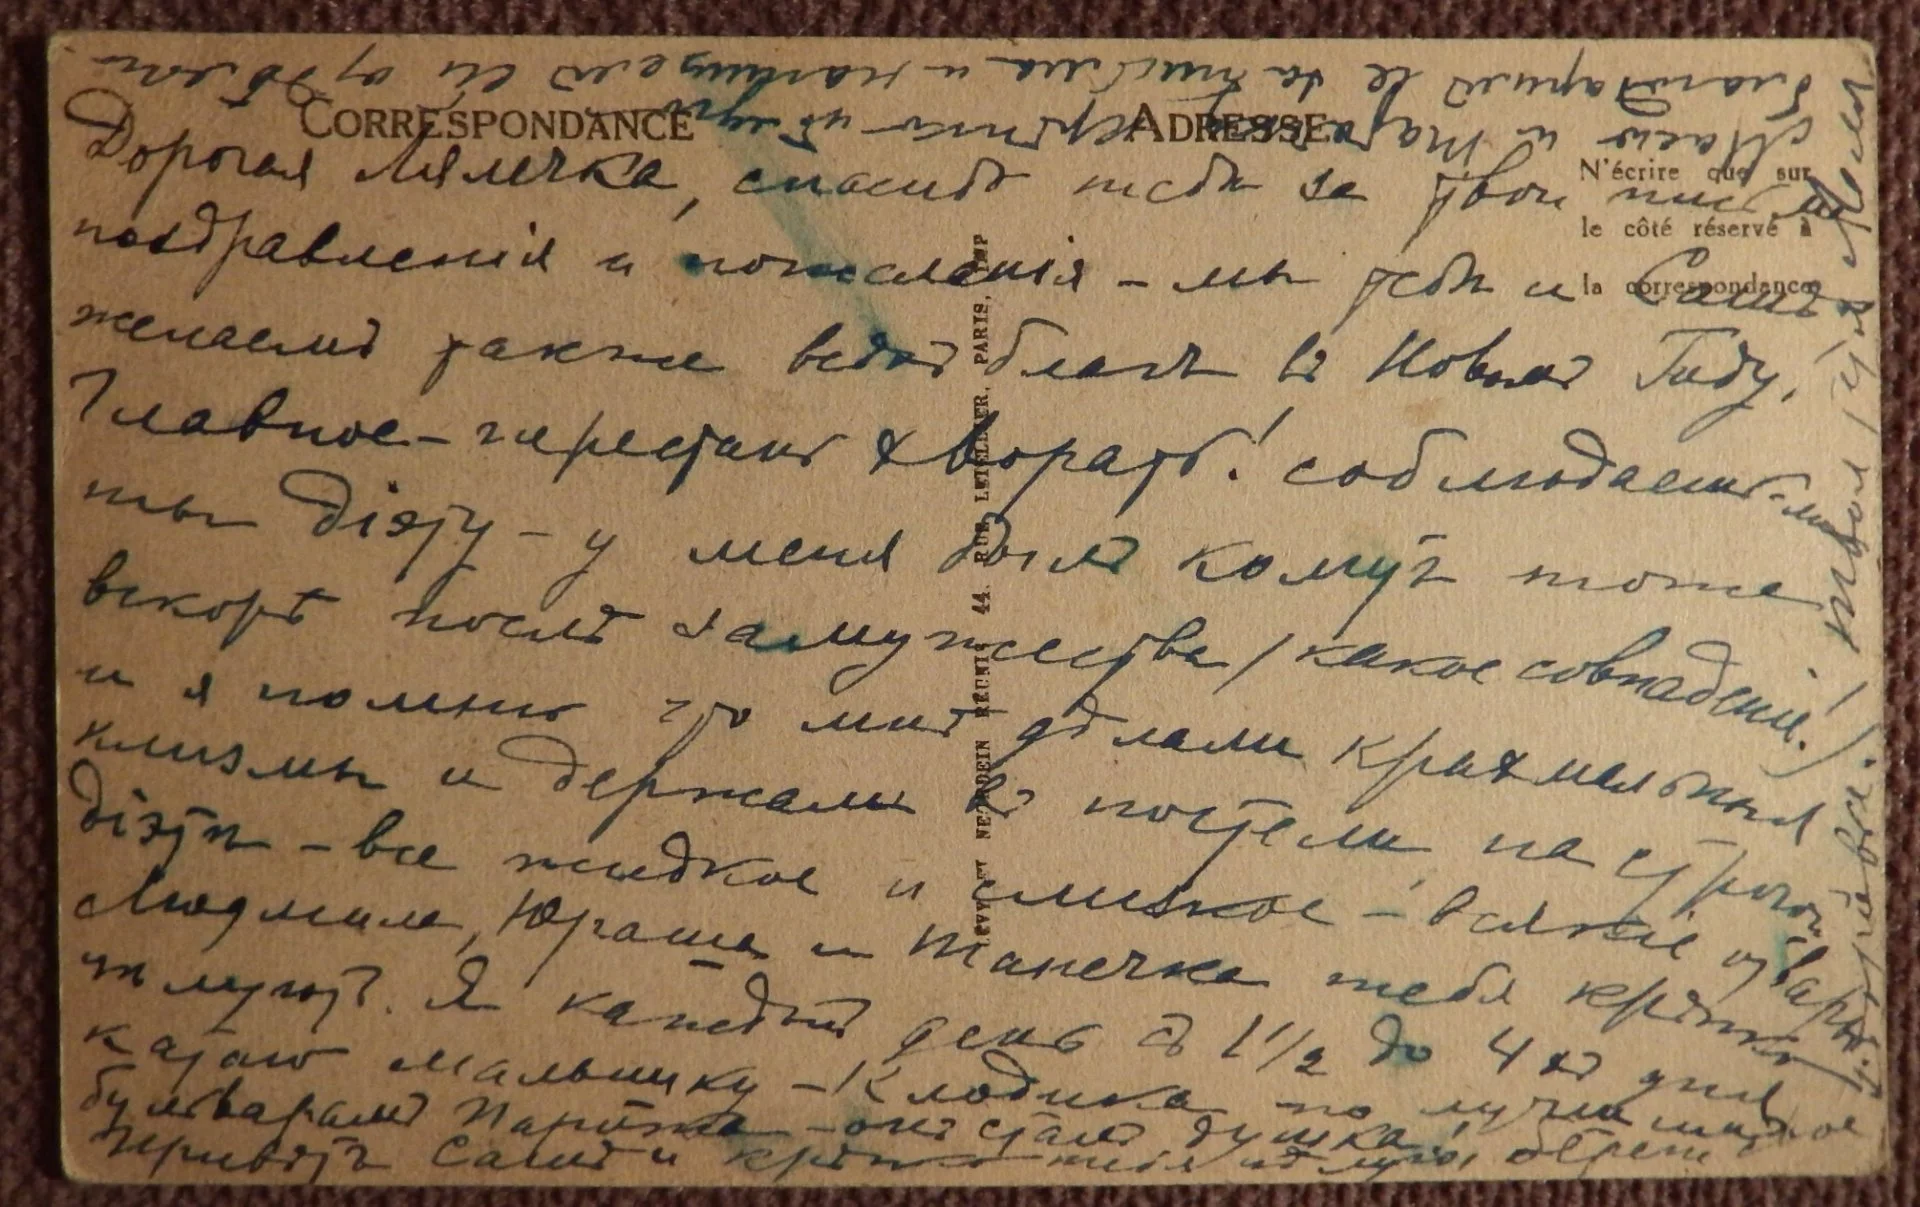 CORRESPONDANCE
ADRESSE
N'écrire que sur
le côté réservé à
la correspondance
Дорогая Лялечка, спасибо тебѣ за твои
поздравленія и пожеланія – мы тебѣ и Сашѣ
желаемъ также всѣхъ благъ въ Новомъ Году.
Главное – перестань хворать! соблюдаешь-ли
ты діэту – у меня былъ колитъ тоже
вскорѣ послѣ замужества (какое совпаденіе!)
и я помню что мнѣ дѣлали крахмальныя
клизмы и держали въ постели, на строгой
діэтѣ – все жидкое и слизкое – всякіе отвары.
Людмила, Юраша и Танечка тебя крѣпко
цѣлуютъ. Я каждый день съ 1 1/2 до 4 хъ дня
катаю мальчику – Клодика по лучшимъ
бульварамъ Парижа – онъ сталъ душка,
Привѣтъ Сашѣ и крѣпко тебя цѣлую,
Твоя
Масю и крѣпко цѣлую
благодарилъ ее за письма и напишетъ ей
LEVY ET NEURDEIN RÉUNIS, 44, RUE LETELLIER, PARIS, IMP